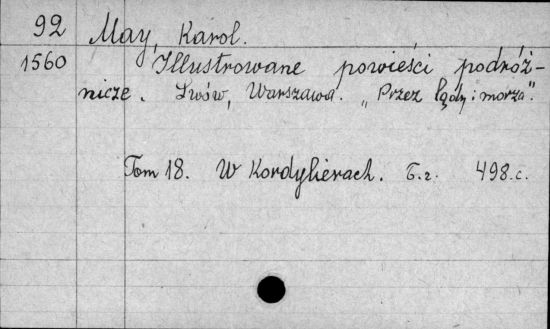 92 May, Karol.
1560 Illustrowane powieści podróż-
nicze. Lwów, Warszawa. „Przez lądy i morza".
Tom 18. W Kordylierach. Б.г. 498.с.